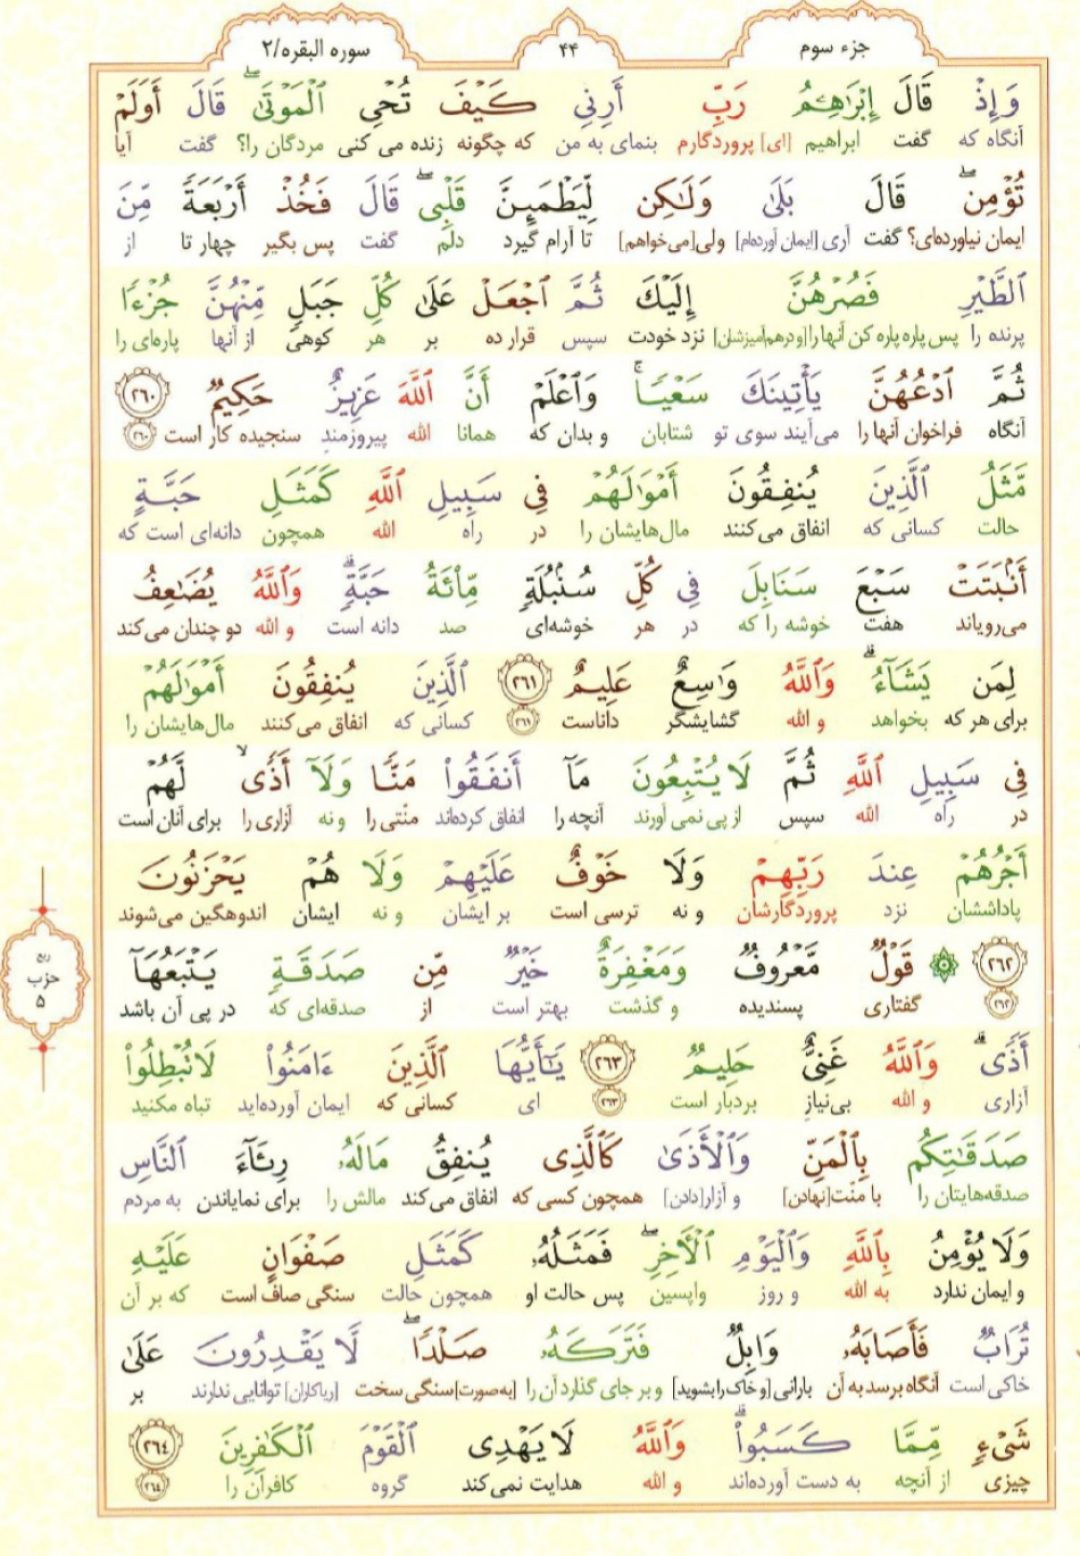 جزء سوم
۴۴
سوره البقره/۲
وَإِذْ قَالَ إِبْرَاهِـۧمُ رَبِّ أَرِنِي كَيْفَ تُحْيِ الْمَوْتَىٰ ۖ قَالَ أَوَلَمْ
آنگاه که گفت ابراهیم [ای] پروردگارم بنمای به من که چگونه زنده می کنی مردگان را؟ گفت آیا
تُؤْمِن ۖ قَالَ بَلَىٰ وَلَٰكِن لِّيَطْمَئِنَّ قَلْبِي ۖ قَالَ فَخُذْ أَرْبَعَةً مِّنَ
ایمان نیاورده‌ای؟ گفت آری [ایمان آورده‌ام] ولی[می‌خواهم] تا آرام گیرد دلم گفت پس بگیر چهار تا از
ٱلطَّيْرِ فَصُرْهُنَّ إِلَيْكَ ثُمَّ ٱجْعَلْ عَلَىٰ كُلِّ جَبَلٍ مِّنْهُنَّ جُزْءًا
پرنده را پس پاره پاره کن آنها را[و درهم‌آمیزشان] نزد خودت سپس قرار ده بر هر کوهی از آنها پاره‌ای را
ثُمَّ ٱدْعُهُنَّ يَأْتِينَكَ سَعْيًا ۚ وَٱعْلَمْ أَنَّ ٱللَّهَ عَزِيزٌ حَكِيمٌ ٢٦٠
آنگاه فراخوان آنها را می‌آیند سوی تو شتابان و بدان که همانا الله پیروزمند سنجیده کار است ۲۶۰
مَّثَلُ ٱلَّذِينَ يُنفِقُونَ أَمْوَٰلَهُمْ فِي سَبِيلِ ٱللَّهِ كَمَثَلِ حَبَّةٍ
حالت کسانی که انفاق می‌کنند مال‌هایشان را در راه الله همچون دانه‌ای است که
أَنۢبَتَتْ سَبْعَ سَنَابِلَ فِي كُلِّ سُنۢبُلَةٍ مِّا۟ئَةُ حَبَّةٍ ۗ وَٱللَّهُ يُضَٰعِفُ
می‌رویاند هفت خوشه را که در هر خوشه‌ای صد دانه است و الله دو چندان می‌کند
لِمَن يَشَآءُ ۗ وَٱللَّهُ وَٰسِعٌ عَلِيمٌ ٢٦١ ٱلَّذِينَ يُنفِقُونَ أَمْوَٰلَهُمْ
برای هر که بخواهد و الله گشایشگر داناست ۲۶۱ کسانی که انفاق می‌کنند مال‌هایشان را
فِي سَبِيلِ ٱللَّهِ ثُمَّ لَا يُتْبِعُونَ مَآ أَنفَقُوا۟ مَنًّا وَلَآ أَذًى ۙ لَّهُمْ
در راه الله سپس از پی نمی آورند آنچه را انفاق کرده‌اند منّتی را و نه آزاری را برای آنان است
أَجْرُهُمْ عِندَ رَبِّهِمْ وَلَا خَوْفٌ عَلَيْهِمْ وَلَا هُمْ يَحْزَنُونَ
پاداششان نزد پروردگارشان و نه ترسی است بر ایشان و نه ایشان اندوهگین می‌شوند
٢٦٢ ۞ قَوْلٌ مَّعْرُوفٌ وَمَغْفِرَةٌ خَيْرٌ مِّن صَدَقَةٍ يَتْبَعُهَآ
۲۶۲ گفتاری پسندیده و گذشت بهتر است از صدقه‌ای که در پی آن باشد
ربع
حزب
۵
أَذًى ۗ وَٱللَّهُ غَنِيٌّ حَلِيمٌ ٢٦٣ يَٰٓأَيُّهَا ٱلَّذِينَ ءَامَنُوا۟ لَا تُبْطِلُوا۟
آزاری و الله بی‌نیاز بردبار است ۲۶۳ ای کسانی که ایمان آورده‌اید تباه مکنید
صَدَقَٰتِكُم بِٱلْمَنِّ وَٱلْأَذَىٰ كَٱلَّذِي يُنفِقُ مَالَهُۥ رِئَآءَ ٱلنَّاسِ
صدقه‌هایتان را با منّت[نهادن] و آزار[دادن] همچون کسی که انفاق می‌کند مالش را برای نمایاندن به مردم
وَلَا يُؤْمِنُ بِٱللَّهِ وَٱلْيَوْمِ ٱلْـَٔاخِرِ ۖ فَمَثَلُهُۥ كَمَثَلِ صَفْوَانٍ عَلَيْهِ
و ایمان ندارد به الله و روز واپسین پس حالت او همچون حالت سنگی صاف است که بر آن
تُرَابٌ فَأَصَابَهُۥ وَابِلٌ فَتَرَكَهُۥ صَلْدًا ۖ لَّا يَقْدِرُونَ عَلَىٰ
خاکی است آنگاه برسد به آن بارانی [و خاک را بشوید] و بر جای گذارد آن را [به‌صورت]سنگی سخت [ریاکاران] توانایی ندارند بر
شَيْءٍ مِّمَّا كَسَبُوا۟ ۗ وَٱللَّهُ لَا يَهْدِي ٱلْقَوْمَ ٱلْكَٰفِرِينَ ٢٦٤
چیزی از آنچه به دست آورده‌اند و الله هدایت نمی‌کند گروه کافران را ۲۶۴